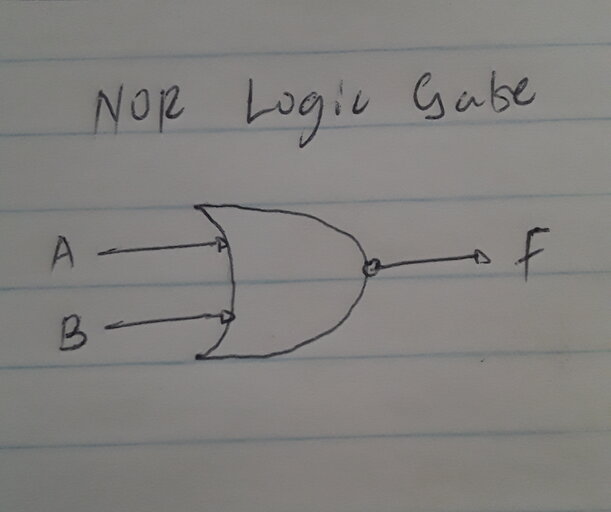 NOR Logic Gate
A
B
F